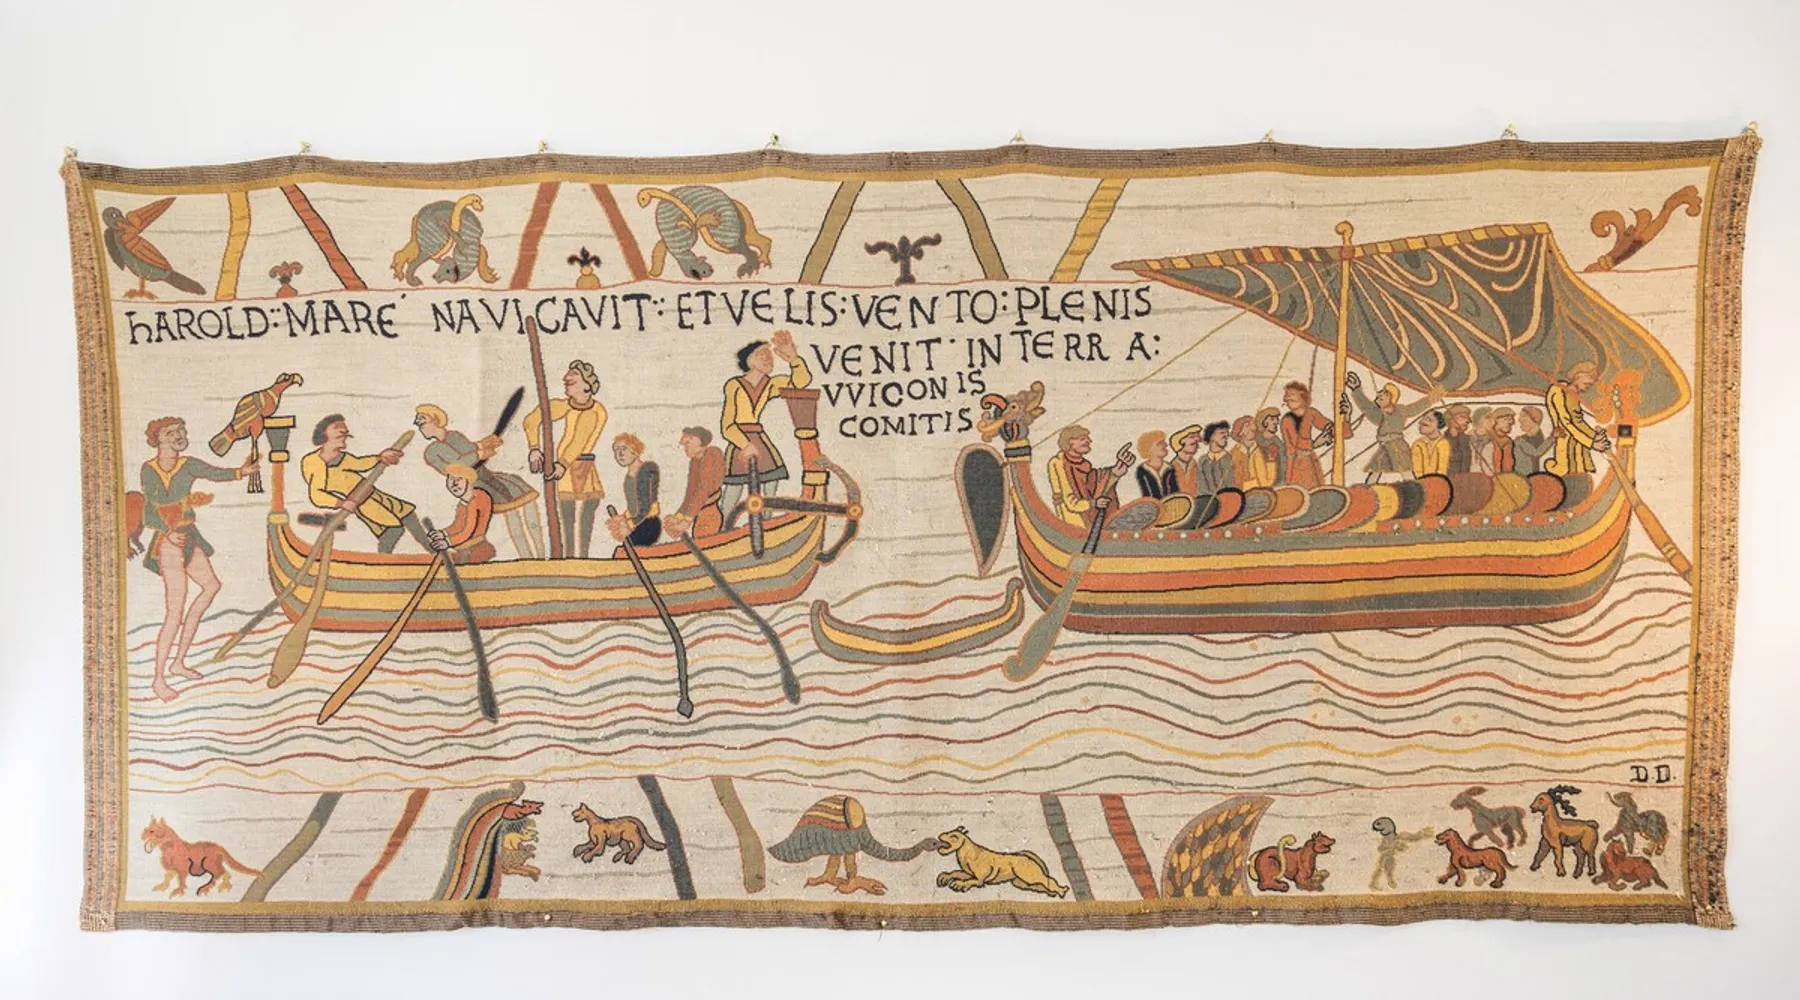 hAROLD:MARE´ NAVICAVIT: ET VELIS: VENTO: PLENIS
VENIT· IN TERRA:
VVICONIS
COMITIS
D D.